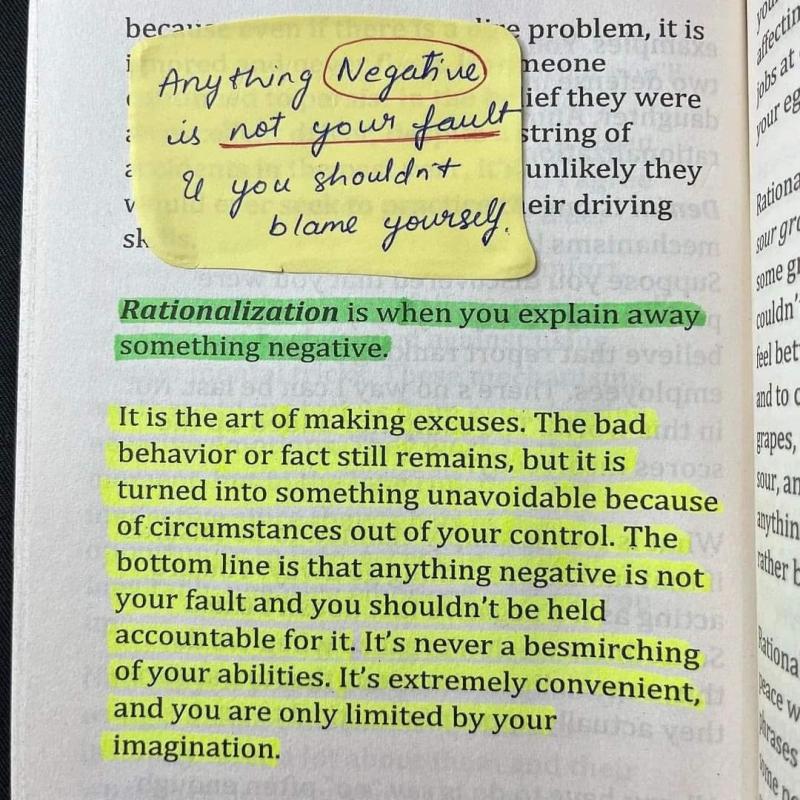 because even if there is a dire problem, it is
meone
lief they were
string of
unlikely they
heir driving
sk
Anything Negative
is not your fault
& you shouldn't
blame yourself.
Rationalization is when you explain away
something negative.
It is the art of making excuses. The bad
behavior or fact still remains, but it is
turned into something unavoidable because
of circumstances out of your control. The
bottom line is that anything negative is not
your fault and you shouldn't be held
accountable for it. It's never a besmirching
of your abilities. It's extremely convenient,
and you are only limited by your
imagination.
affectin
jobs at
your eg
Rationa
sour gr
some gr
couldn'
feel bet
and to c
grapes,
sour, an
anythin
rather b
Rational
peace w
phrases